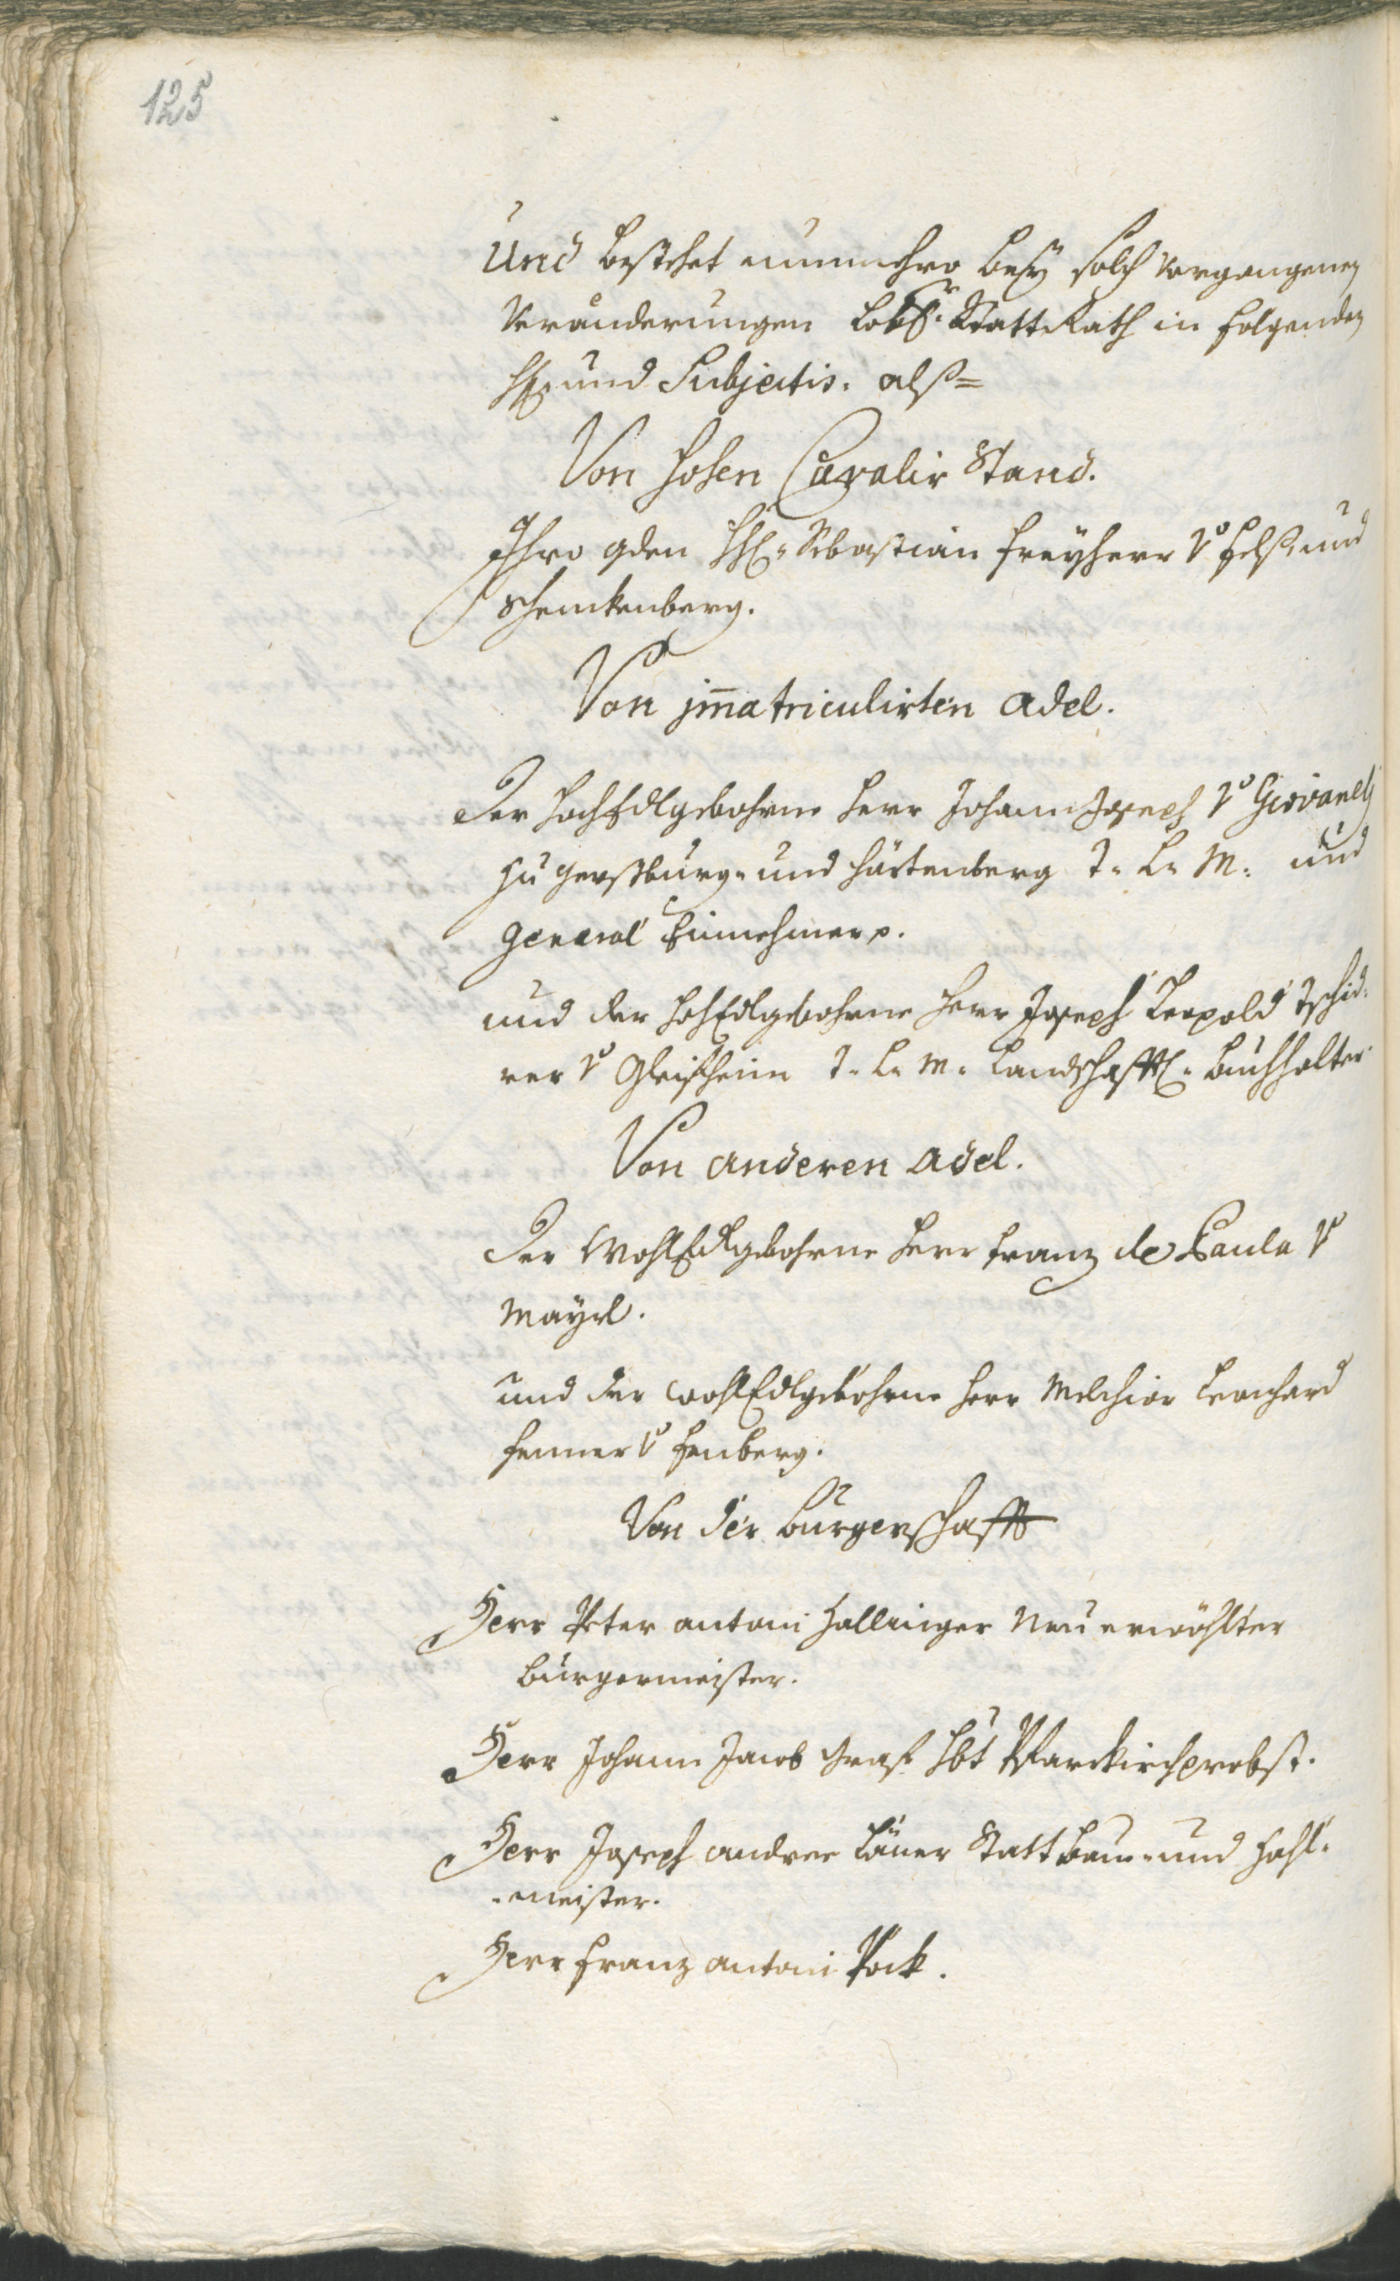 125
Und bestehet nunmehro beÿ solch vorgangenen
Veränderungen löbl: StattRath in folgenden
H: und Subjectis. alß=
Von hohen Cavalir Stand.
Ihro gden H: Sebastian freÿherr v Felß und
Schenckenberg.
Von im̅atriculirten Adel.
Der HochEdlgebohrne herr Johann Joseph v Giovaneli
zu Gerstburg- und Hörtenberg T. L. M: und
General Einnehmer p.
und der HohEdlgebohrne herr Joseph Leopold Tschid-
rer v Gleifheim T. L. M. Landschafftl: buechhalter
Von anderen Adel.
Der WohlEdlgebohrne herr franz de Paula v
Maÿrl.
und der WohlEdlgebohrne herr Melchior Leonhard
fenner v fenberg.
Von der burgerschafft
Herr Peter Antoni Hallinger Neu erwöhlter
burgermeister.
Herr Johann Jacob Graff Pfarrkirchprobst.
Herr Joseph Andree Laner Stattbau- und Zahl-
-meister.
Herr Franz Antoni Pock.